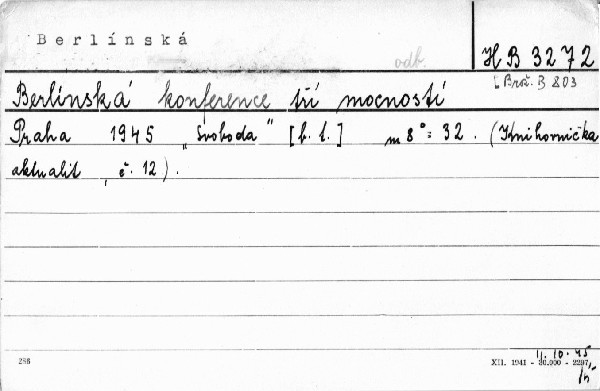 Berlínská
odb.
H B 3272
[Brož. B 803
Berlínská konference tří mocností
Praha 1945 „Svoboda" [b. t.] m 8°: 32. (Knihovnička
aktualit, č. 12).
286
XII. 1941 - 30.000 - 2297
11. 10. 45